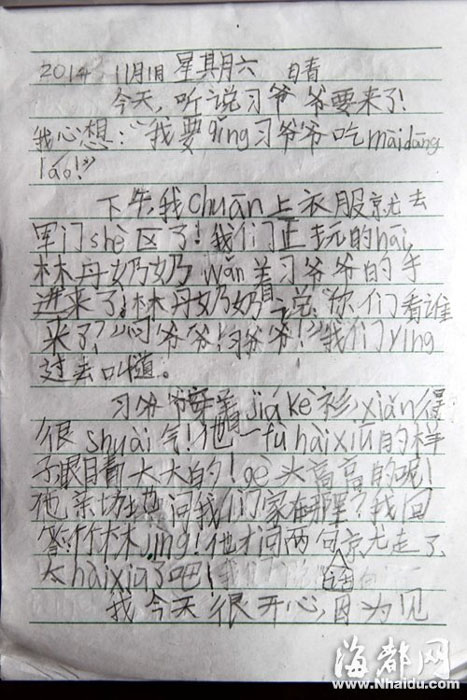 2014 11月1日 星期六 晴
今天,听说习爷爷要来了!
我心想:“我要qǐng习爷爷吃màidāng
láo!”
下午,我chuān上衣服就去
军门shè区了!我们正玩的hāi,
林丹奶奶wǎn着习爷爷的手
进来了!林丹奶奶说:“你们看谁
来了?”“习爷爷!习爷爷!”我们yíng
过去叫道。
习爷爷穿着jiá kè衫,xiǎn得
很shuài气!他一fù hài xiū的样
子眼睛大大的!gè头高高的呢!
他亲切地问我们家在哪里?我回
答:竹林jìng!他才问两句就走了
太hài xiū了吧!
话
我今天很开心,因为见
海都网
www.Nhaidu.com